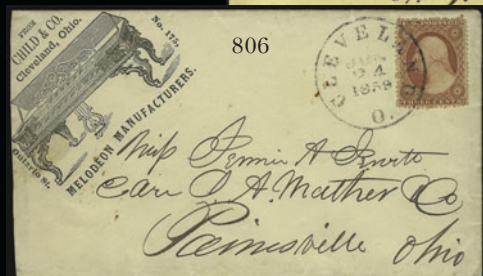 FROM
CHILD & CO.
Cleveland, Ohio.
No. 175,
Ontario St.
MELODEON MANUFACTURERS.
806
CLEVELAND
24
1859
O.
THREE CENTS
Miss Jennie A
Care A. Mather & Co
Painesville Ohio